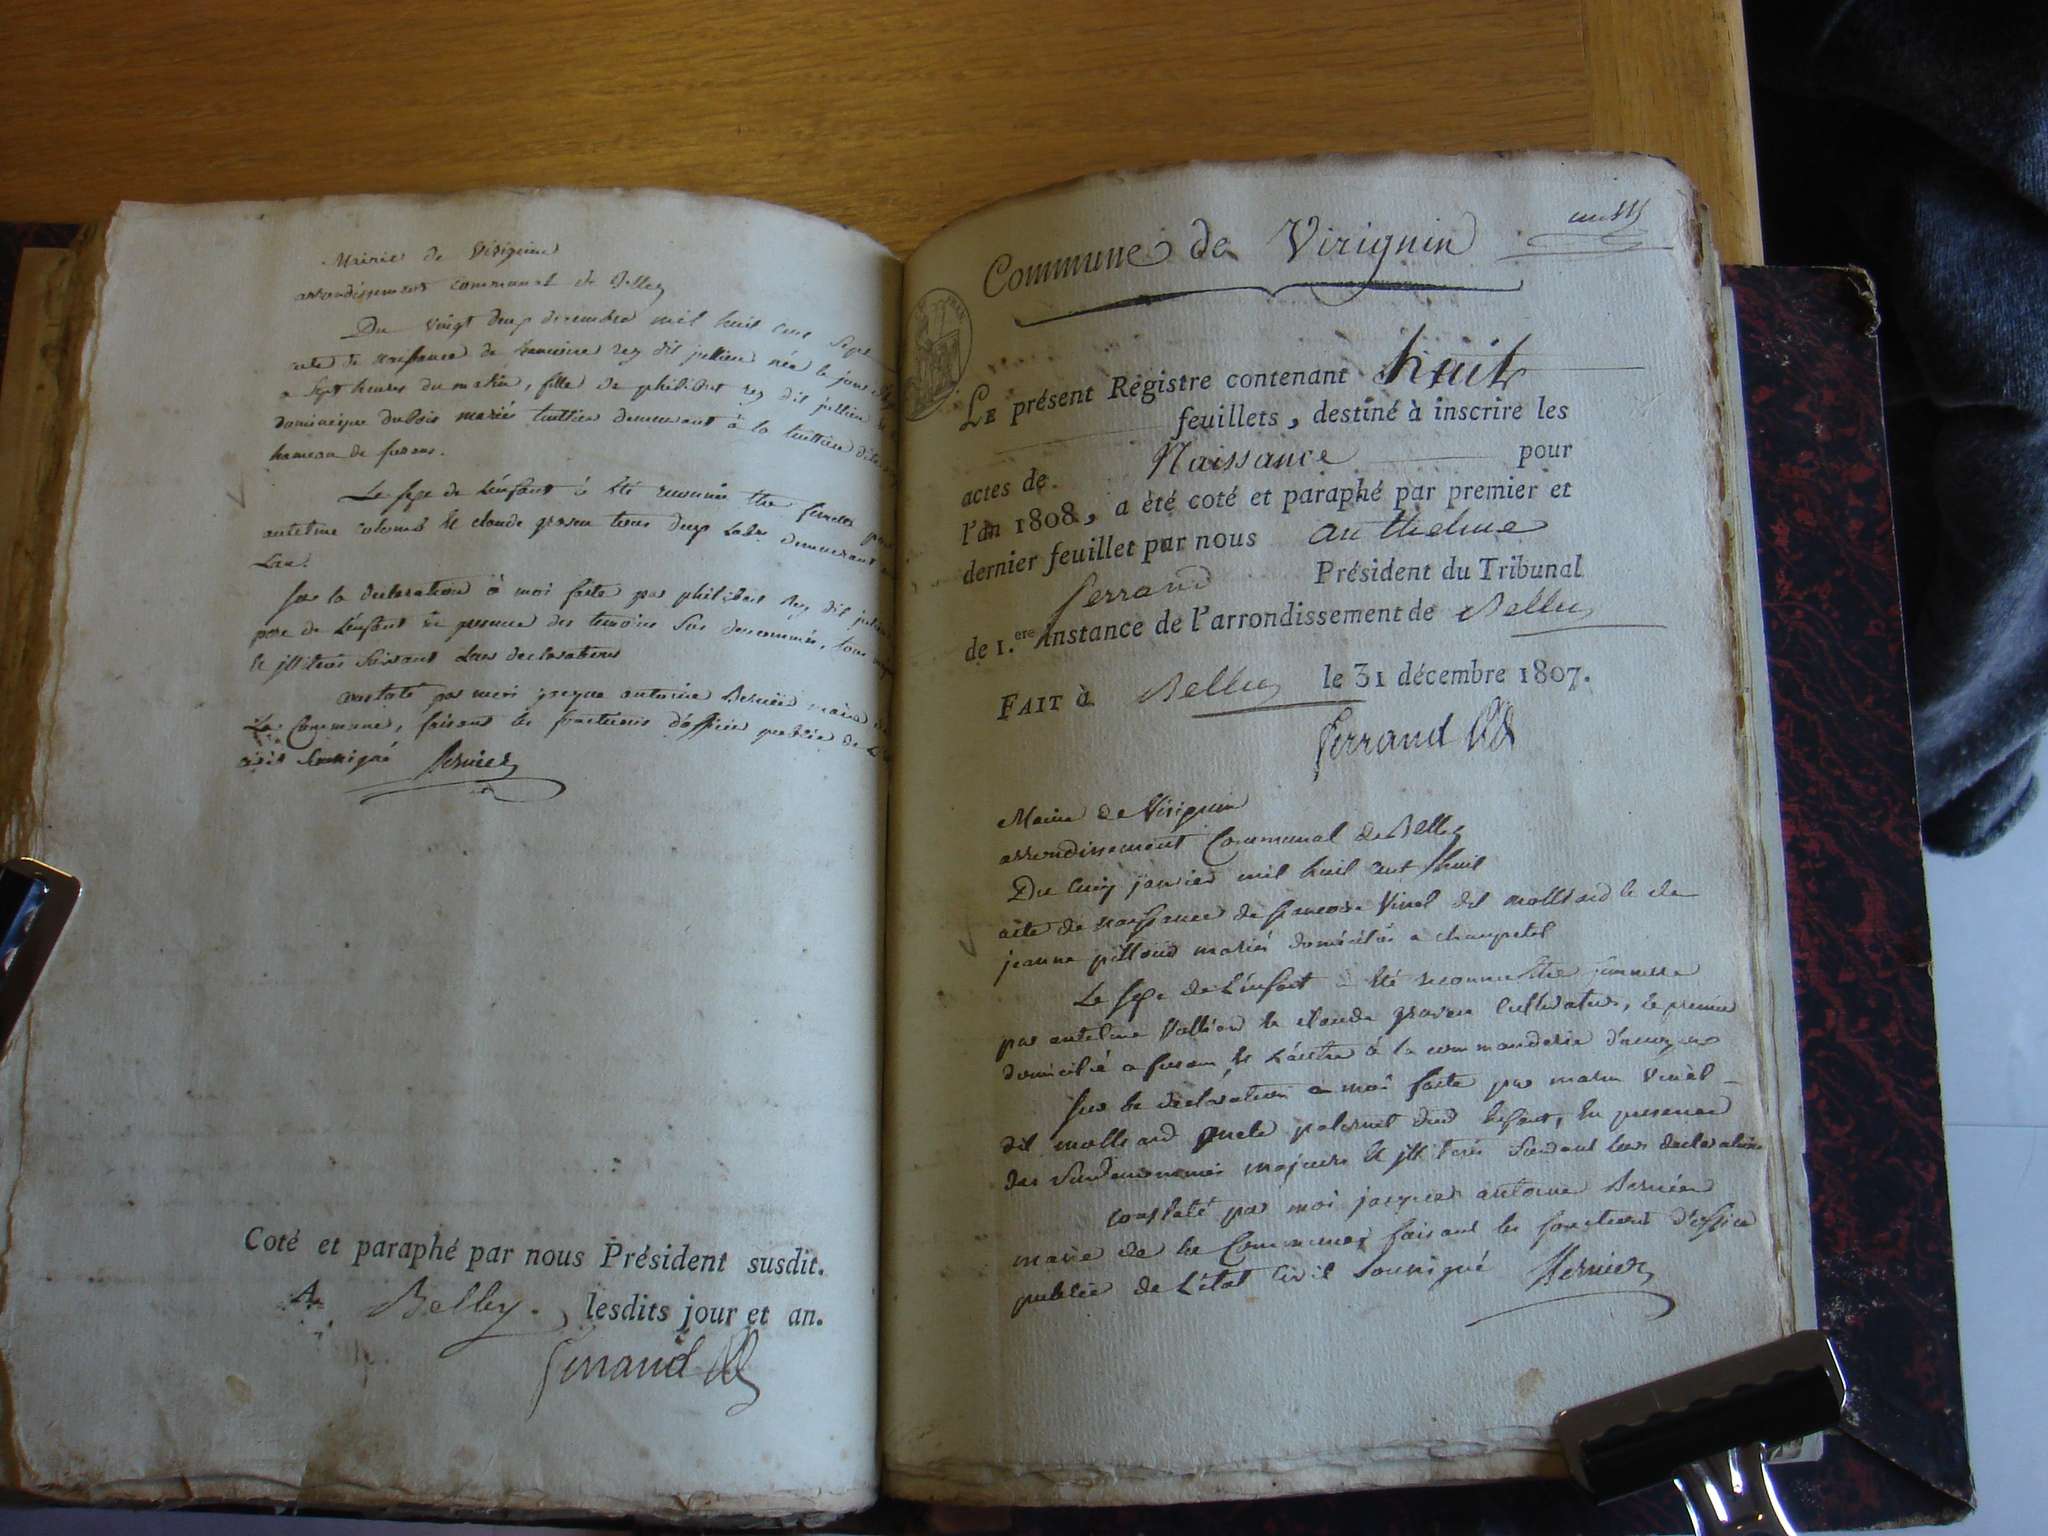 Mairie de Virignin
arrondissement communal de Belley
Du vingt deux decembre mil huit cent sept
acte de naissance de rey dit jullien née le jour
a sept heures du matin, fille de philibert rey dit jullien
dominique dubois mariés demeurant à la
hameau de furans.
Le sexe de l'enfant à été reconnu être
antelme colomb et claude gravon tous deux demeurant
Lieu.
sur la declaration à moi faite par philibert Rey dit jullien
pere de l'enfant en presence des temoins sus denommés, tous
et illiterés suivant leurs declarations
constaté par moi jacque antoine Bernier maire de
La Commune, faisant les fonctions d'officier public de L'
civil soussigné Bernier
Coté et paraphé par nous Président susdit.
A Belley. lesdits jour et an.
Ferrand
Commune de Virignin
LE présent Registre contenant huit
feuillets, destiné à inscrire les
actes de Naissance pour
l'an 1808, a été coté et paraphé par premier et
dernier feuillet par nous anthelme
ferrand Président du Tribunal
de 1.ere Instance de l'arrondissement de Belley
FAIT à Belley le 31 décembre 1807.
Ferrand
Mairie de Virignin
arrondissement Communal de Belley
Du cinq janvier mil huit cent huit
acte de naissance de françoise Vinel dit molliard et de
jeanne pilloud mariés domiciliés a champetel
Le sexe de L'enfant à été reconnu être
par antelme Vallion et claude gravon cultivateurs, le premier
domicilié a furans, et L'autre à la commanderie
sur la declaration a moi faite par Vinel
dit molliard oncle paternel dud enfant, En presence
des susdenommés majeurs et illiterés suivant leurs declarations
constaté par moi jacques antoine Bernier
maire de la Commune faisant les fonctions d'officier
public de L'état Civil soussigné Bernier